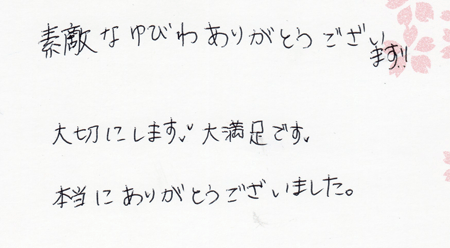 素敵なゆびわありがとうございます!!
大切にします。大満足です。
本当にありがとうございました。